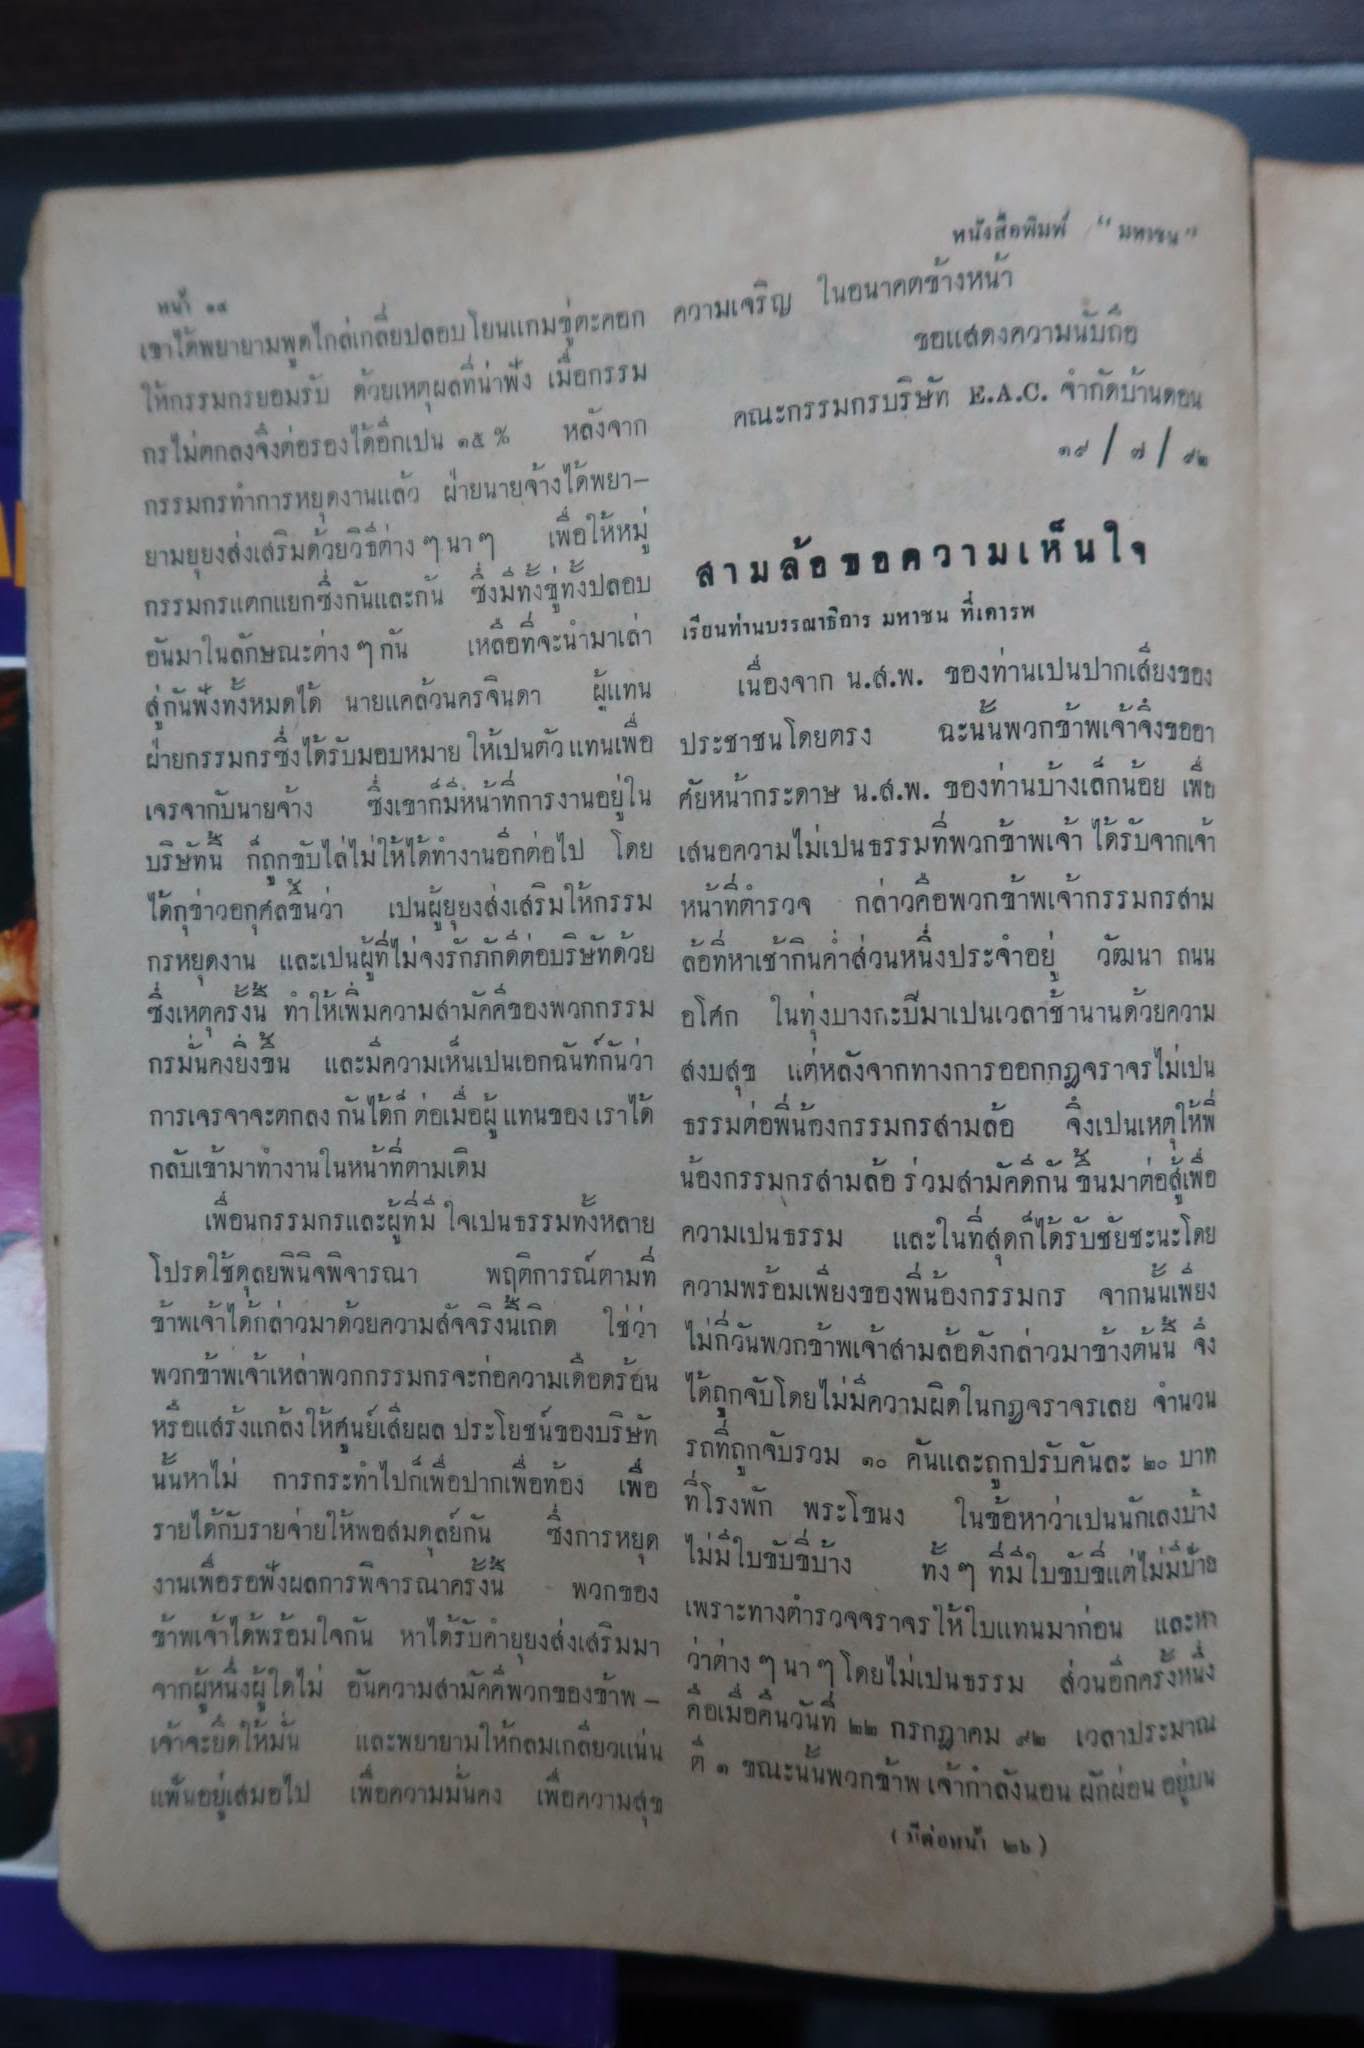 หนังสือพิมพ์ "มหาชน"
หน้า ๑๘
เขาได้พยายามพูดไกล่เกลี่ยปลอบโยนแกมขู่ตะคอก
ให้กรรมกรยอมรับ ด้วยเหตุผลที่น่าฟัง เมื่อกรรม
กรไม่ตกลงจึงต่อรองได้อีกเปน ๑๕ % หลังจาก
กรรมกรทำการหยุดงานแล้ว ฝ่ายนายจ้างได้พยา–
ยามยุยงส่งเสริมด้วยวิธีต่าง ๆ นา ๆ เพื่อให้หมู่
กรรมกรแตกแยกซึ่งกันและกัน ซึ่งมีทั้งขู่ทั้งปลอบ
อันมาในลักษณะต่าง ๆ กัน เหลือที่จะนำมาเล่า
สู่กันฟังทั้งหมดได้ นายแคล้วนครจินดา ผู้แทน
ฝ่ายกรรมกรซึ่งได้รับมอบหมาย ให้เปนตัว แทนเพื่อ
เจรจากับนายจ้าง ซึ่งเขาก็มีหน้าที่การงานอยู่ใน
บริษัทนี้ ก็ถูกขับไล่ไม่ให้ได้ทำงานอีกต่อไป โดย
ได้กุข่าวอกุศลขึ้นว่า เปนผู้ยุยงส่งเสริมให้กรรม
กรหยุดงาน และเปนผู้ที่ไม่จงรักภักดีต่อบริษัทด้วย
ซึ่งเหตุครั้งนี้ ทำให้เพิ่มความสามัคคีของพวกกรรม
กรมั่นคงยิ่งขึ้น และมีความเห็นเปนเอกฉันท์กันว่า
การเจรจาจะตกลง กันได้ก็ ต่อเมื่อผู้ แทนของ เราได้
กลับเข้ามาทำงานในหน้าที่ตามเดิม
เพื่อนกรรมกรและผู้ที่มี ใจเปนธรรมทั้งหลาย
โปรดใช้ดุลยพินิจพิจารณา พฤติการณ์ตามที่
ข้าพเจ้าได้กล่าวมาด้วยความสัจจริงนี้เถิด ใช่ว่า
พวกข้าพเจ้าเหล่าพวกกรรมกรจะก่อความเดือดร้อน
หรือแสร้งแกล้งให้ศูนย์เสียผล ประโยชน์ของบริษัท
นั้นหาไม่ การกระทำไปก็เพื่อปากเพื่อท้อง เพื่อ
รายได้กับรายจ่ายให้พอสมดุลย์กัน ซึ่งการหยุด
งานเพื่อรอฟังผลการพิจารณาครั้งนี้ พวกของ
ข้าพเจ้าได้พร้อมใจกัน หาได้รับคำยุยงส่งเสริมมา
จากผู้หนึ่งผู้ใดไม่ อันความสามัคคีพวกของข้าพ –
เจ้าจะยึดให้มั่น และพยายามให้กลมเกลียวแน่น
แฟ้นอยู่เสมอไป เพื่อความมั่นคง เพื่อความสุข
ความเจริญ ในอนาคตข้างหน้า
ขอแสดงความนับถือ
คณะกรรมกรบริษัท E.A.C. จำกัดบ้านดอน
๑๙ / ๗ / ๙๒
สามล้อขอความเห็นใจ
เรียนท่านบรรณาธิการ มหาชน ที่เคารพ
เนื่องจาก น.ส.พ. ของท่านเปนปากเสียงของ
ประชาชนโดยตรง ฉะนั้นพวกข้าพเจ้าจึงขออา
ศัยหน้ากระดาษ น.ส.พ. ของท่านบ้างเล็กน้อย เพื่อ
เสนอความไม่เปนธรรมที่พวกข้าพเจ้า ได้รับจากเจ้า
หน้าที่ตำรวจ กล่าวคือพวกข้าพเจ้ากรรมกรสาม
ล้อที่หาเช้ากินค่ำส่วนหนึ่งประจำอยู่ วัฒนา ถนน
อโศก ในทุ่งบางกะปีมาเปนเวลาช้านานด้วยความ
สงบสุข แต่หลังจากทางการออกกฎจราจรไม่เปน
ธรรมต่อพี่น้องกรรมกรสามล้อ จึงเปนเหตุให้พี่
น้องกรรมกรสามล้อ ร่วมสามัคคีกัน ขึ้นมาต่อสู้เพื่อ
ความเปนธรรม และในที่สุดก็ได้รับชัยชะนะโดย
ความพร้อมเพียงของพี่น้องกรรมกร จากนั้นเพียง
ไม่กี่วันพวกข้าพเจ้าสามล้อดังกล่าวมาข้างต้นนี้ จึง
ได้ถูกจับโดยไม่มีความผิดในกฎจราจรเลย จำนวน
รถที่ถูกจับรวม ๑๐ คันและถูกปรับคันละ ๒๐ บาท
ที่โรงพัก พระโขนง ในข้อหาว่าเปนนักเลงบ้าง
ไม่มีใบขับขี่บ้าง ทั้ง ๆ ที่มีใบขับขี่แต่ไม่มีป้าย
เพราะทางตำรวจจราจรให้ใบแทนมาก่อน และหา
ว่าต่าง ๆ นา ๆ โดยไม่เปนธรรม ส่วนอีกครั้งหนึ่ง
คือเมื่อคืนวันที่ ๒๒ กรกฎาคม ๙๒ เวลาประมาณ
ตี ๑ ขณะนั้นพวกข้าพ เจ้ากำลังนอน ผักผ่อน อยู่บน
(มีต่อหน้า ๒๖)